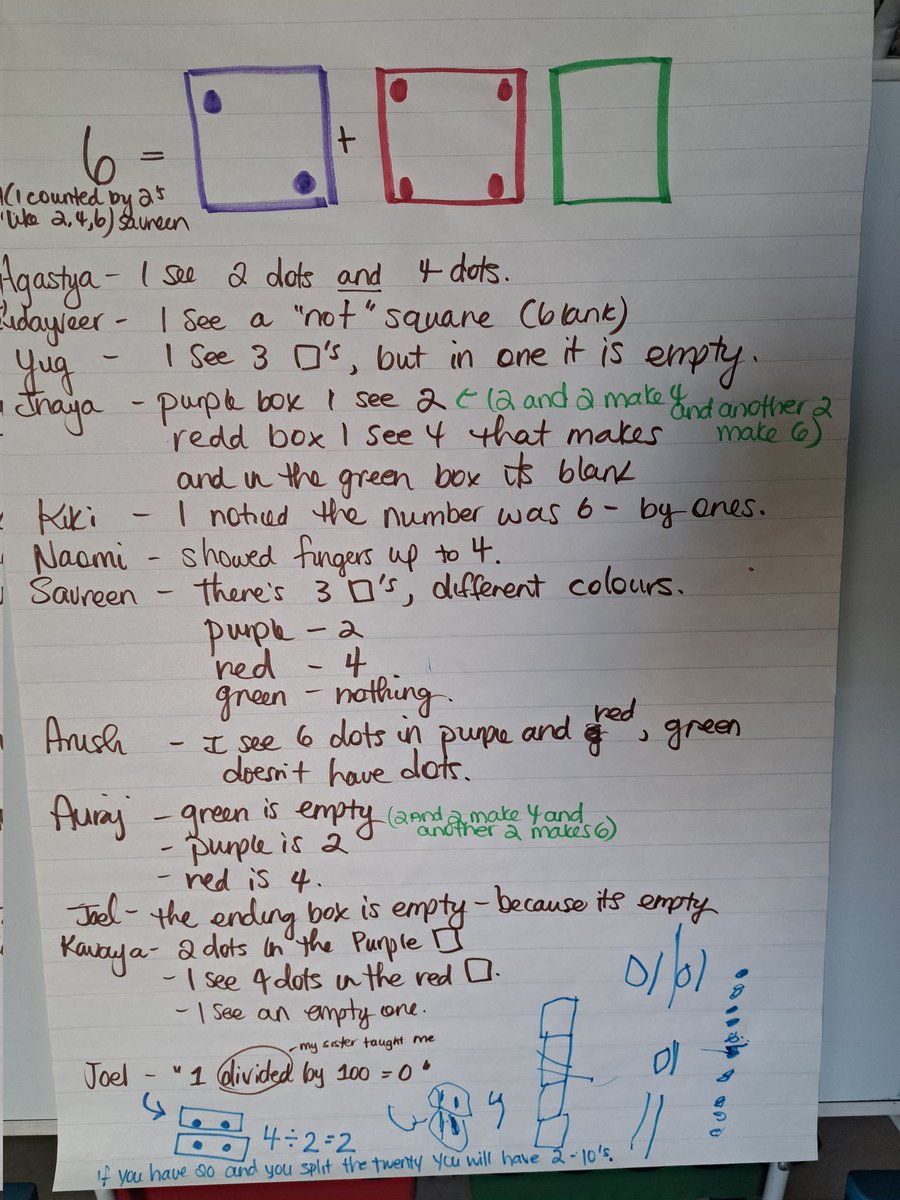 6 = +
(I counted by 2s
like 2,4,6) Savreen
Agastya - I see 2 dots and 4 dots.
udayveer - I see a "not" square (blank)
Yug - I see 3 □'s, but in one it is empty.
Inaya - purple box I see 2 ← (2 and 2 make 4 and another 2 make 6)
redd box I see 4 that makes
and in the green box its blank
Kiki - I noticed the number was 6 - by ones.
Naomi - showed fingers up to 4.
Savreen - there's 3 □'s, different colours.
purple - 2
red - 4
green - nothing.
Arush - I see 6 dots in purple and red, green
doesn't have dots.
Auraj - green is empty (2 And 2 make 4 and another 2 makes 6)
- purple is 2
- red is 4.
Joel - the ending box is empty - because its empty
Kavaya - 2 dots in the Purple □
- I see 4 dots in the red □.
- I see an empty one.
my sister taught me
Joel - "1 divided by 100 = 0"
4÷2=2
4
If you have 20 and you split the twenty you will have 2-10's.